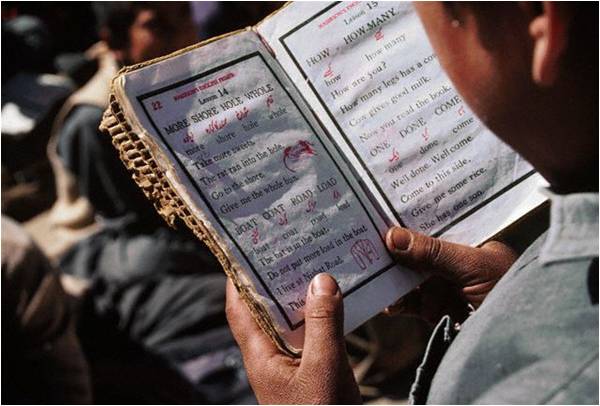 22
ENGLISH PRIMER
Lesson 14
MORE SHORE HOLE WHOLE
more shore hole whole
Take more sweets.
The rat ran into the hole.
Go to the shore.
Give me the whole bun.
BOAT COAT ROAD LOAD
boat coat road load
The bat is in the boat.
Do not put more load in the boat.
I live at Road.
This
ENGLISH PRIMER
Lesson 15
HOW HOW MANY
how how many
How are you?
How many legs has a co
Cow gives good milk.
Now you read the book.
ONE DONE COME
one done come
Well done. Well come.
Come to this side.
Give me some rice.
She has one son.